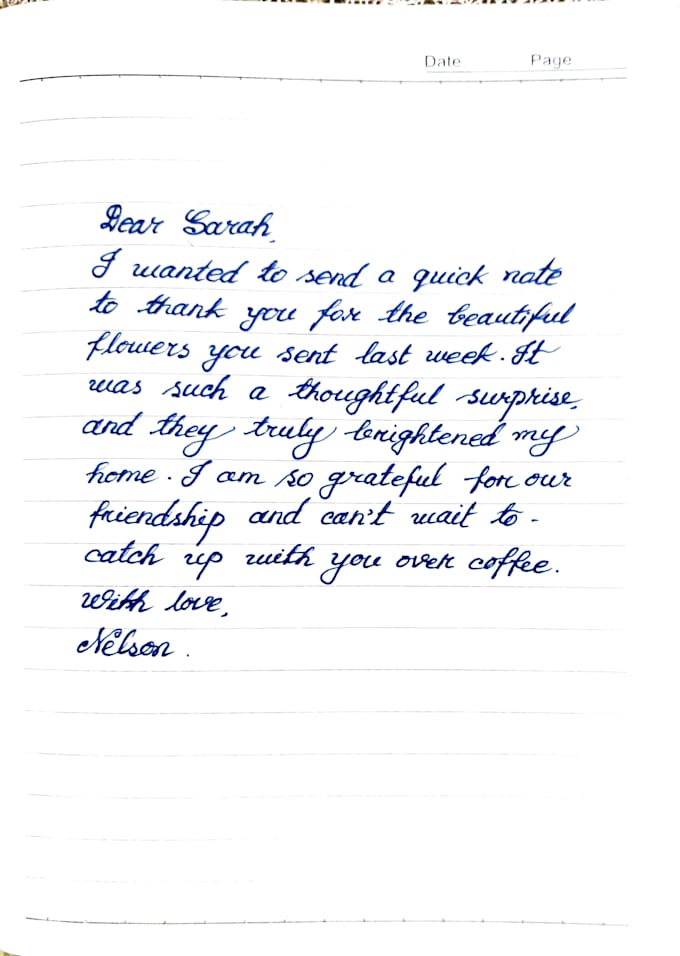 Date Page
Dear Sarah,
I wanted to send a quick note
to thank you for the beautiful
flowers you sent last week. It
was such a thoughtful surprise,
and they truly brightened my
home. I am so grateful for our
friendship and can't wait to -
catch up with you over coffee.
With love,
Nelson.